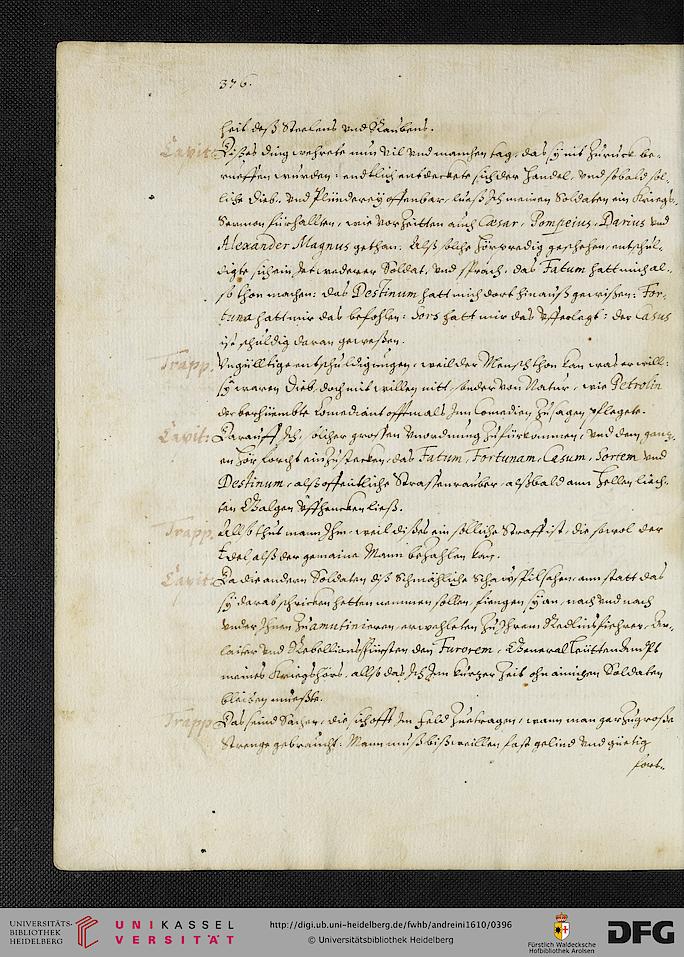 376.
heit deß Steelens vnd Raubens.
Capit: Dises ding wehrete nun vil vnd manchen tag, das sy nit Zuruck be-
rueffen wurden: endtlich entdeckete sich der Handel, vnd sobald sol-
liche Dieb- vnd Plündereÿ offenbar, ließ Ich meinen Soldaten ein Kriegs-
Sermon fürhallten, wie vor Zeitten auch Cæsar, Pompeius, Darius vnd
Alexander Magnus gethan. Alß solche geschehen, entschul-
digte sich ein Jetwederer Soldat, vnd sprach, das Fatum hatt mich al-
so thon machen: das Destinum hatt mich dort hinauß gewisen: For-
tuna hatt mir das befohlen: Sors hatt mir das Vfferlegt: der Casus
ist schuldig daran gewesen.
Trapp. Vngülltige entschuldigungen, weil der Mensch thon kan was er will:
sy waren Dieb, doch mit willen nitt, sonder von Natur, wie Petrolin
der berhüembte Comediant offtmals Inn Comedien Zusagen pflegete.
Capit: Darauff Ich, solcher grossen Vnordnung Zufürkommen, vnd dem gantz-
en Hör forcht einzustecken, das Fatum, Fortunam, Casum, Sortem vnd
Destinum, alß offentliche Strassenrauber, alßbald ann hellen liech-
ten Galgen Vffhencken ließ.
Trapp. Allso thut mann Ihm, weil dises ein solliche Straff ist, die sowol der
Edel, alß der gemaine Mann bezahlen kan.
Capit: Da die andern Soldaten diß Schmähliche Schauspil sehen, ann statt das
sy darab schrecken hetten nemmen sollen, fiengen sy an, nach vnd nach
vnder Ihnen Zu amutinieren, erwehleten Zu Ihrem Redlinsfüehrer,
vnd Rebellions Fürsten den Furorem, General Leüttenampt
meines Kriegshörs, allso das Ich Inn kurtzer Zeit ohn ainichen Soldaten
bleiben mueßte.
Trapp. Das seind Sachen, die sich offt Im feld Zuetragen, wann man gar Zu grosse
Strenge gebraucht: Mann muß bißweillen fast gelind vnd güetig
fort-
UNIVERSITÄTS-
BIBLIOTHEK
HEIDELBERG
UNIKASSEL
VERSITÄT
http://digi.ub.uni-heidelberg.de/fwhb/andreini1610/0396
© Universitätsbibliothek Heidelberg
Fürstlich Waldecksche
Hofbibliothek Arolsen
DFG